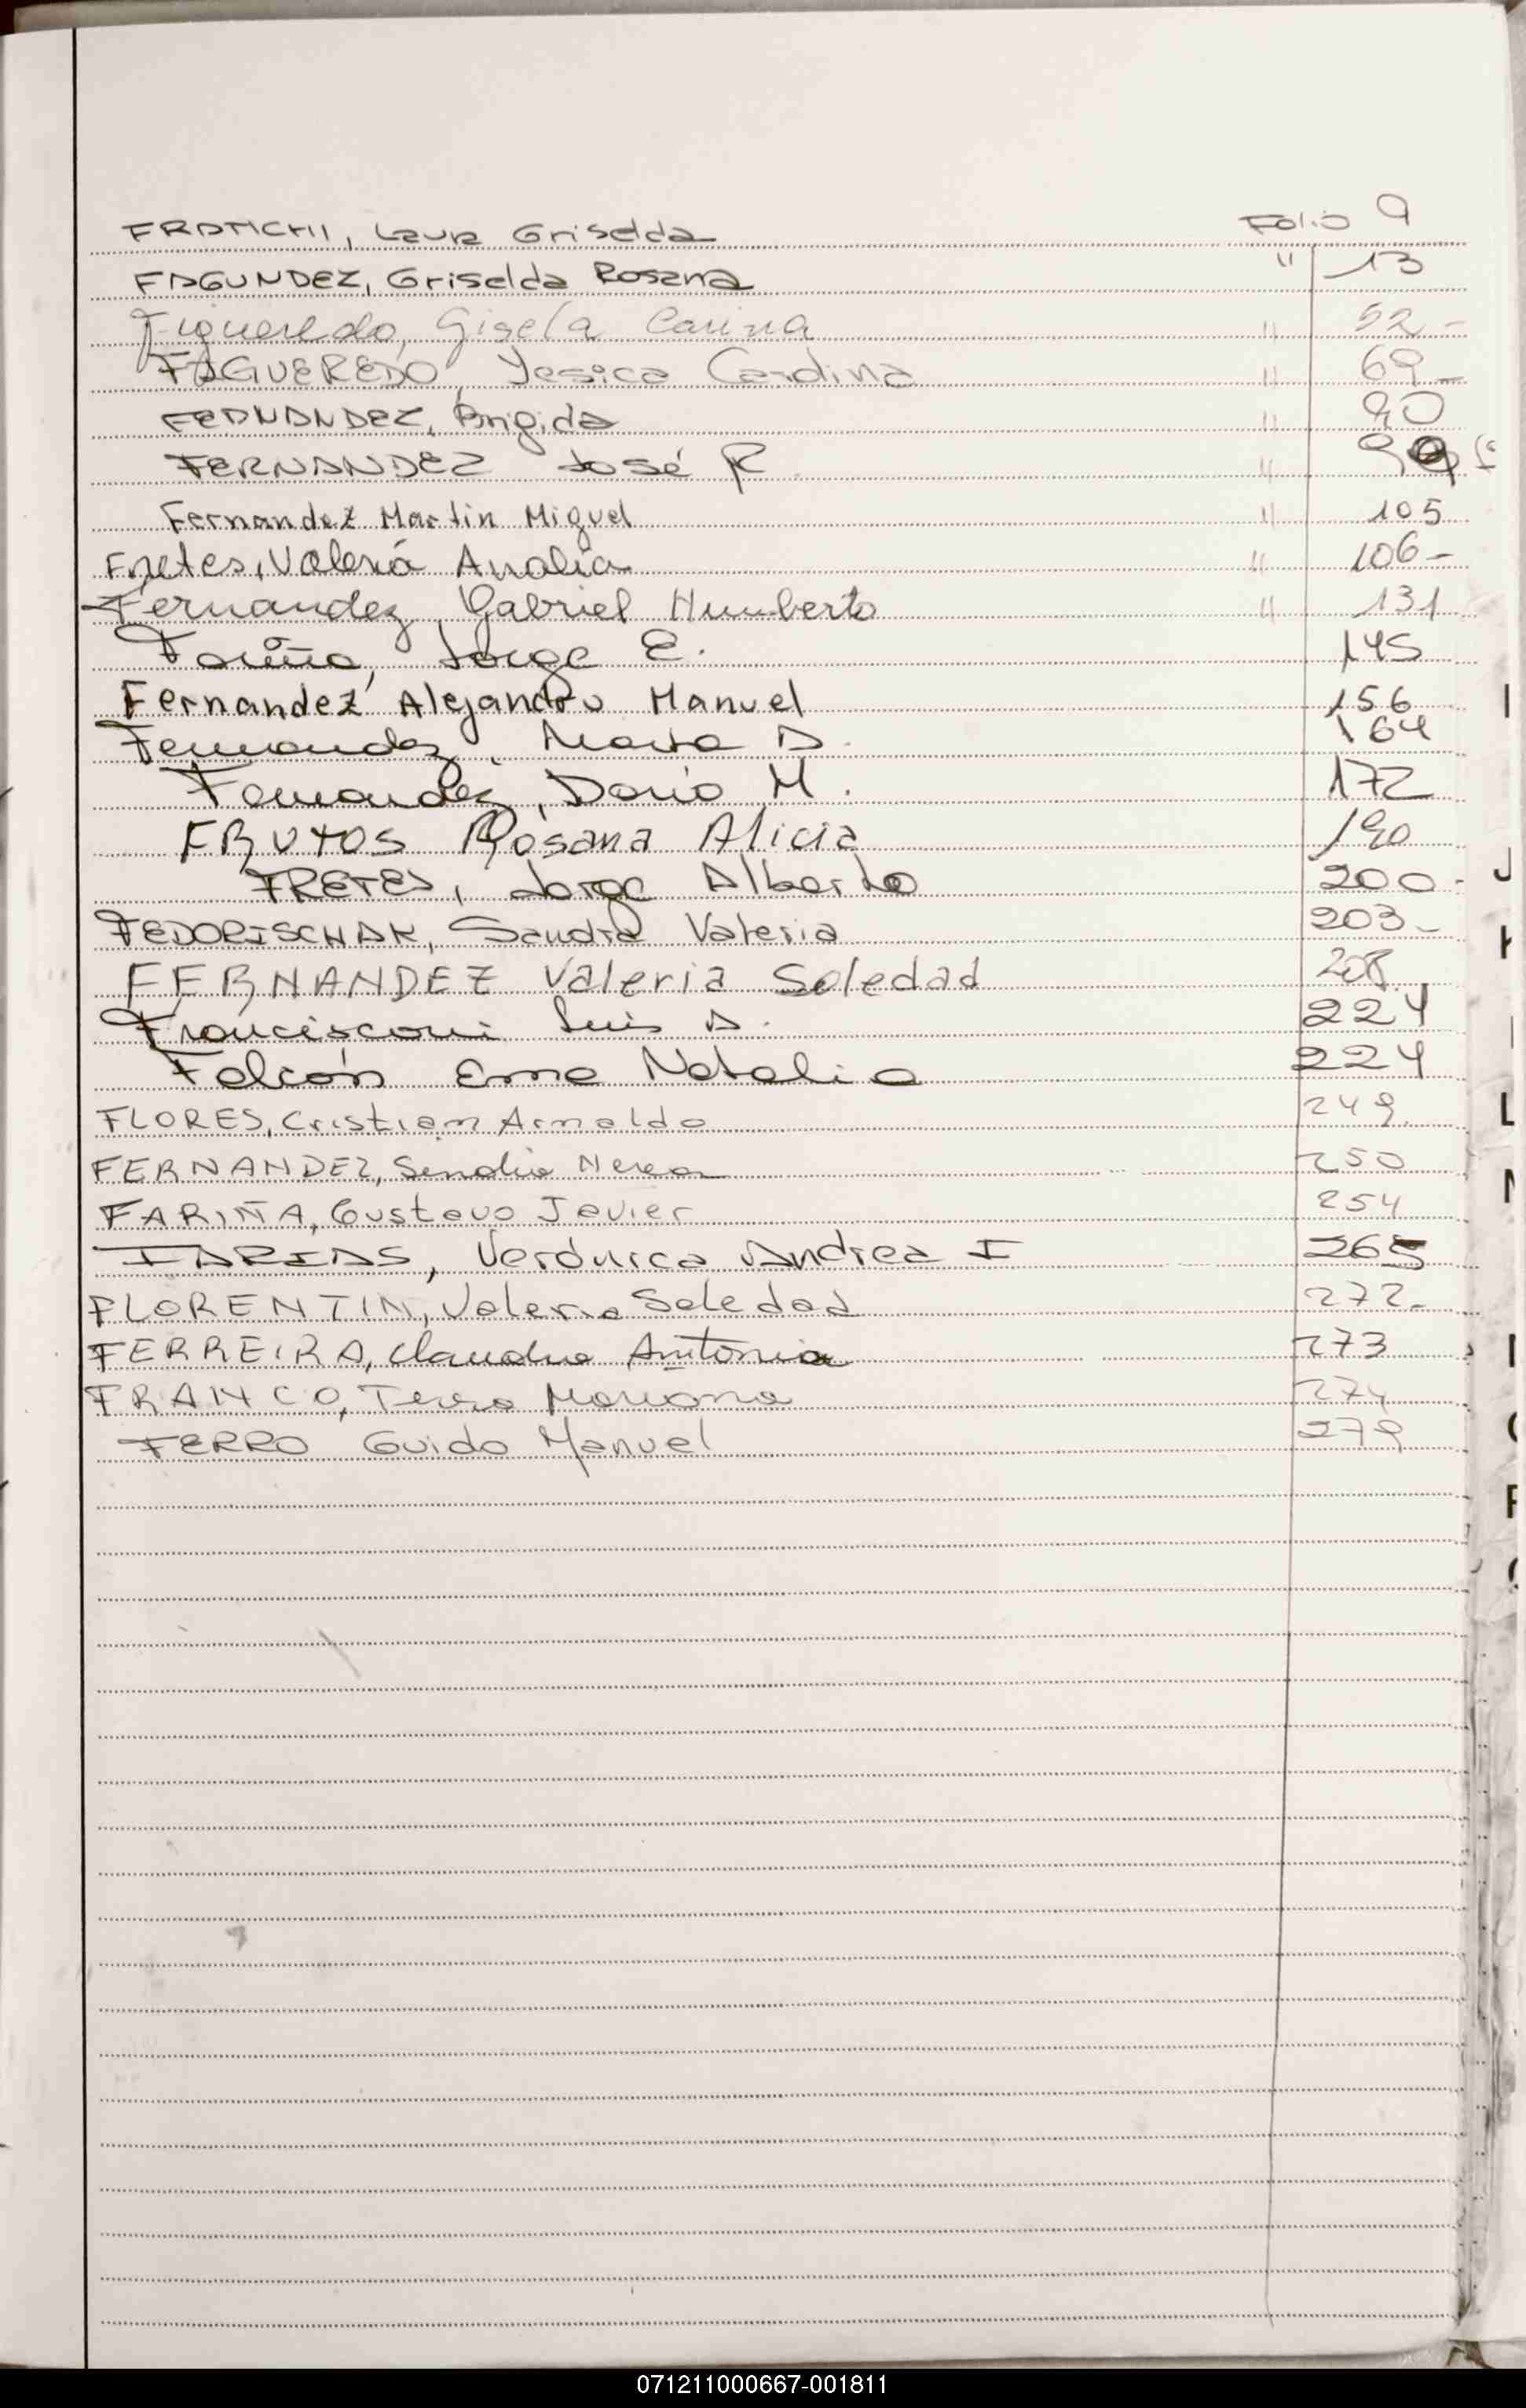 FRATICHI, Laura Griselda Folio 9
FAGUNDEZ, Griselda Rosana " 13
Figueredo, Gisela Carina " 52-
FAGUEREDO, Yesica Carolina " 69-
FERNANDEZ, Brigida " 90
FERNANDEZ José R. "
Fernandez Martin Miguel " 105
Fretes, Valeria Analía " 106-
Fernandez, Gabriel Humberto " 131
Fariña, Jorge E. 145
Fernandez Alejandro Manuel 156
Fernandez, Maria D. 164
Fernandez, Dario M. 172
FRUTOS Rosana Alicia 190
FRETES, Jorge Alberto 200-
FEDORISCHAK, Sandra Valeria 203-
FERNANDEZ Valeria Soledad 208
Francisconi Luis A. 224
Falcón Erna Natalia 224
FLORES, Cristian Arnaldo 249
FERNANDEZ, Sandra Nerea 250
FARIÑA, Gustavo Javier 254
FARIAS, Verónica Andrea I 265
FLORENTIN, Valeria Soledad 272-
FERREIRA, Claudia Antonia 273
FRANCO, Mariana 274
FERRO Guido Manuel 279
J
K
L
071211000667-001811